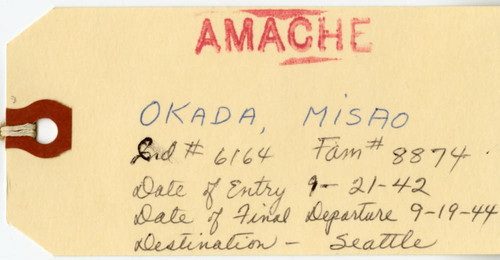 AMACHE
OKADA, MISAO
Ind # 6164 Fam # 8874
Date of Entry 9-21-42
Date of Final Departure 9-19-44
Destination - Seattle